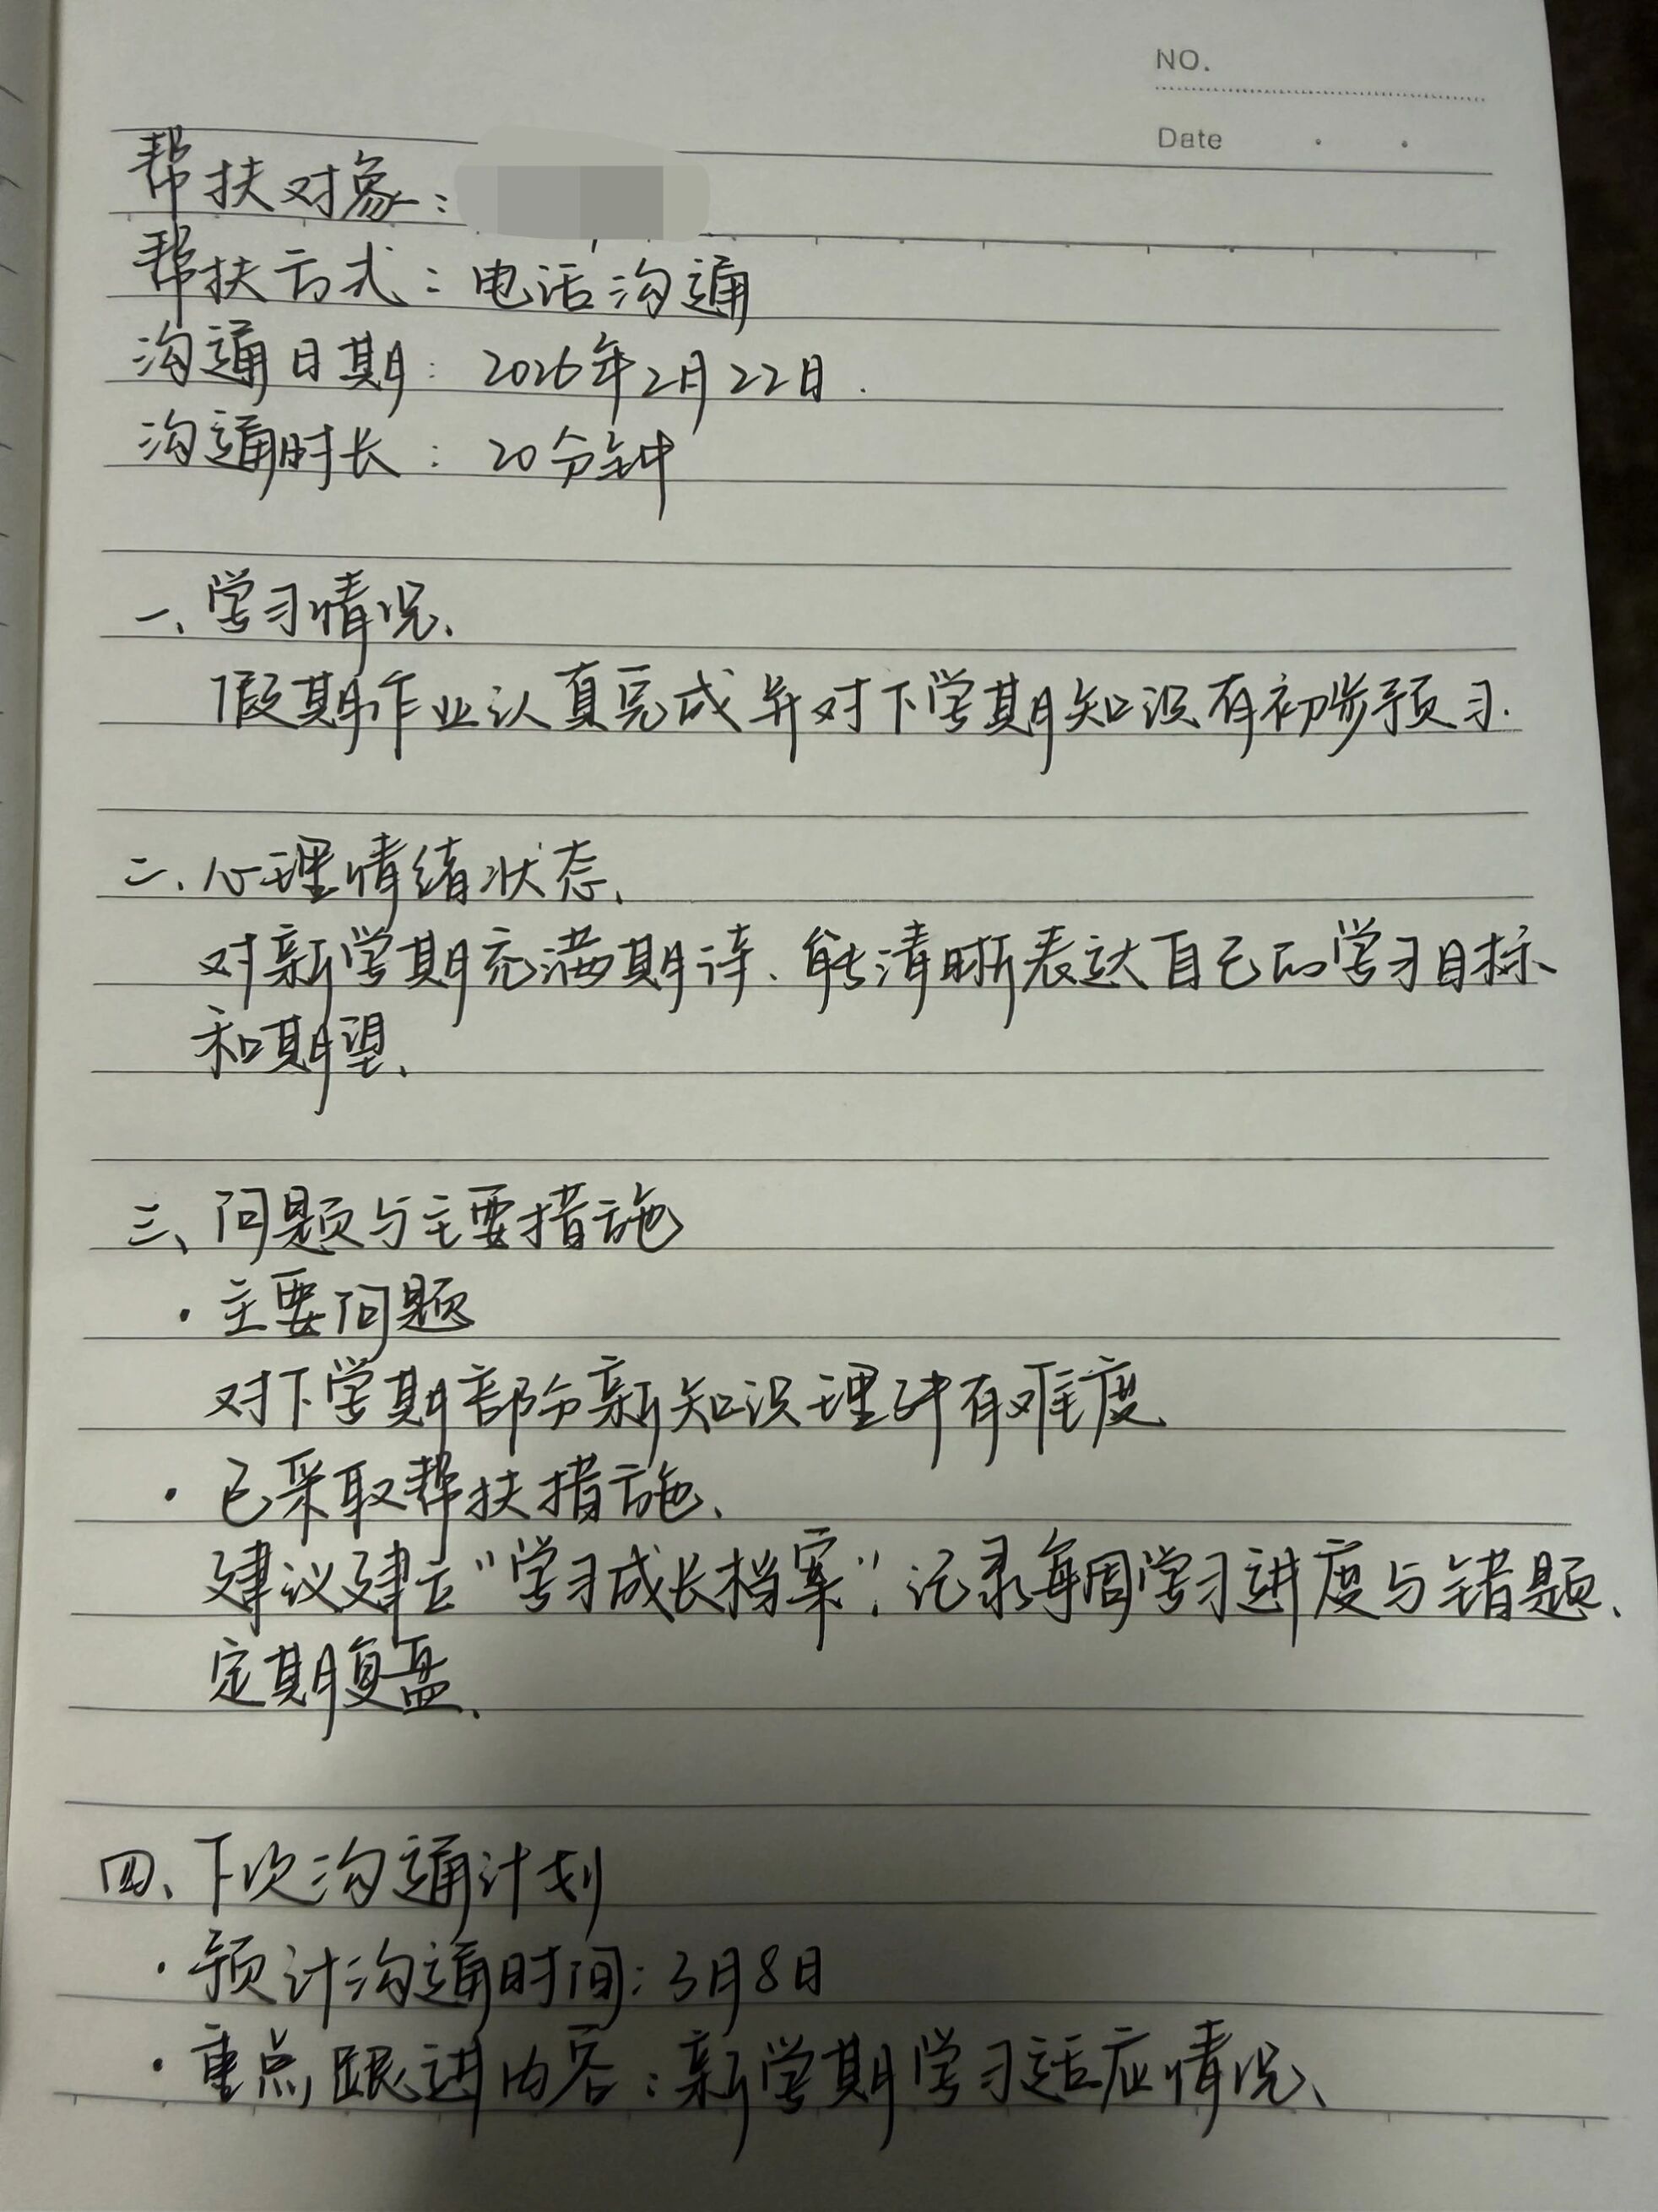 NO.
Date
帮扶对象:
帮扶方式:电话沟通
沟通日期:2026年2月22日.
沟通时长:20分钟
一、学习情况、
假期作业认真完成并对下学期知识有初步预习.
二、心理情绪状态、
对新学期充满期待、能清晰表达自己的学习目标
和期望、
三、问题与主要措施
·主要问题
对下学期部分新知识理解有难度
·已采取帮扶措施、
建议建立“学习成长档案”,记录每周学习进度与错题、
定期复盘、
四、下次沟通计划
·预计沟通时间:3月8日
·重点跟进内容:新学期学习适应情况、